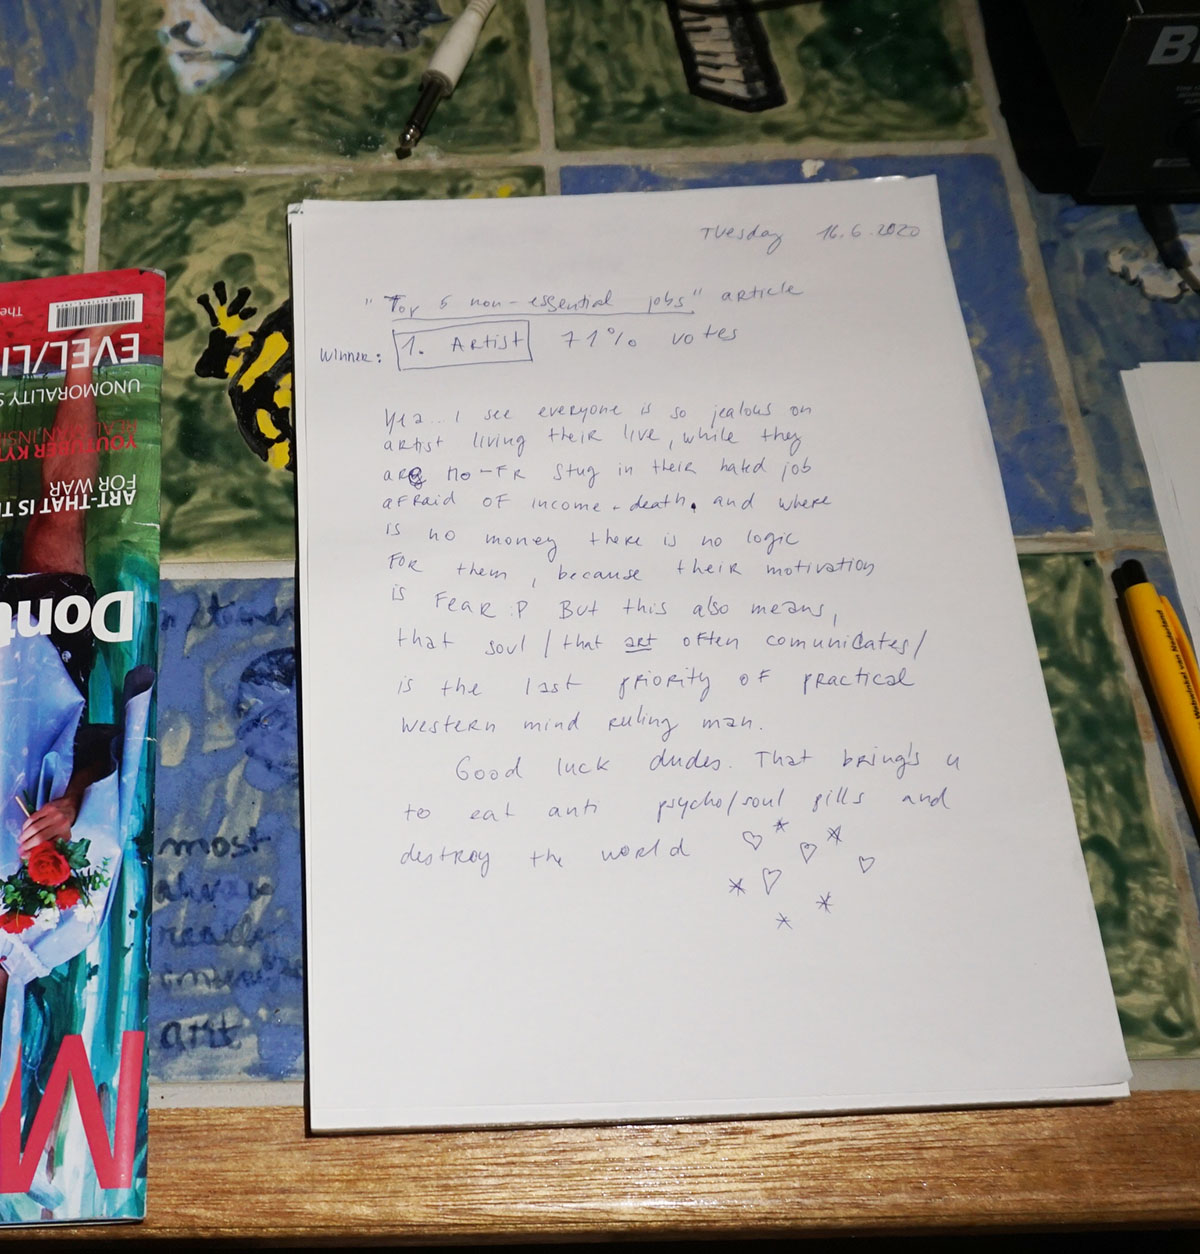 Tuesday 16.6.2020
"Top 5 non-essential jobs" article
Winner: 1. Artist 71% votes
Yea... I see everyone is so jealous on
artist living their live, while they
are Mo-FR stug in their hated job
afraid of income-death. and where
is no money there is no logic
For them, because their motivation
is Fear :P But this also means,
that soul /that art often comunicates/
is the last priority of practical
western mind ruling man.
Good luck dudes. That bring's u
to eat anti psycho/soul pills and
destroy the world
EVEL/LI
UNOMORALITY S
YOUTUBER KY
FOR WAR
ART-THAT IS T
Dont
M
most
really
art
B